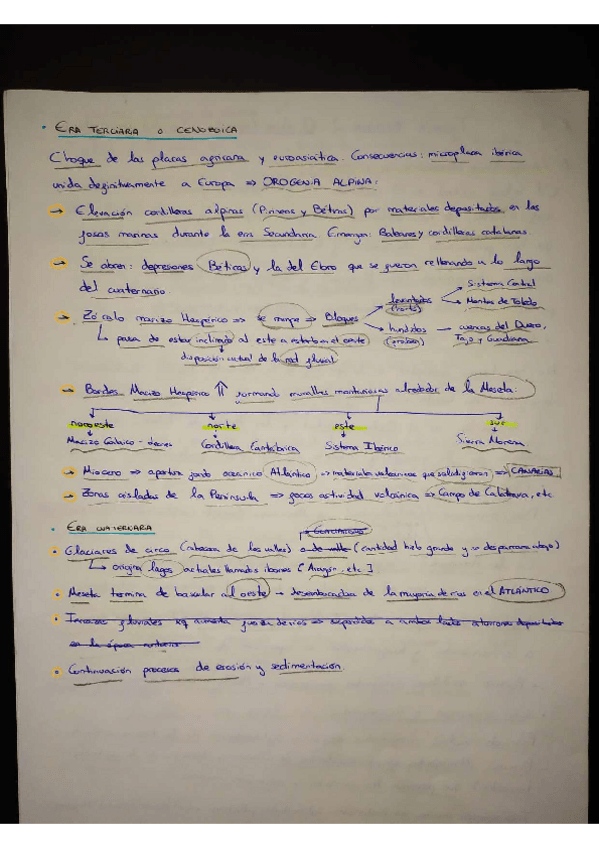 • ERA TERCIARIA o CENOZOICA
Choque de las placas africana y euroasiática. Consecuencias: microplaca ibérica
unida definitivamente a Europa ⇒ OROGENIA ALPINA:
→ Elevación cordilleras alpinas (Pirineos y Béticas) por materiales depositados en las
fosas marinas durante la era Secundaria. Emergen: Baleares y cordilleras catalanas.
→ Se abren: depresiones Béticas y la del Ebro que se fueron rellenando a lo largo
del cuaternario.
→ Zócalo macizo Hespérico ⇒ se rompe ⇒ Bloques
levantados (horts) → Sistema Central
→ Montes de Toledo
hundidos (fosas) → cuencas del Duero,
Tajo y Guadiana
↳ pasa de estar inclinado al este a estarlo en el oeste
disposición actual de la red fluvial
→ Bordes Macizo Hespérico ⇑ formando murallas montañosas alrededor de la Meseta:
noroeste norte este sur
Macizo Galaico-leonés Cordillera Cantábrica Sistema Ibérico Sierra Morena
→ Mioceno ⇒ apertura fondo oceánico Atlántico ⇒ materiales volcánicos que salieron ⇒ CANARIAS
→ Zonas aisladas de la Península ⇒ focos actividad volcánica ⇒ Campo de Calatrava, etc
• ERA CUATERNARIA
• Glaciares de circo (cabecera de los valles) o de valle (cantidad hielo grande y se desparrama abajo)
↳ origina lagos actuales llamados ibones [Aragón, etc]
• Meseta termina de bascular al oeste → desembocadura de la mayoría de ríos en el ATLÁNTICO
• Terrazas fluviales aumenta fuerza de ríos ⇒ a ambos lados
en la época anterior
• Continuación procesos de erosión y sedimentación.